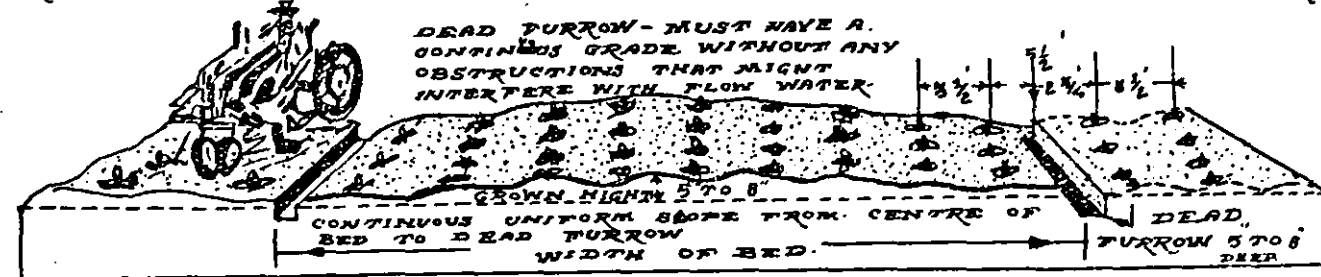 DEAD FURROW - MUST HAVE A.
CONTINUS GRADE WITHOUT ANY
OBSTRUCTIONS THAT MIGHT
INTERFERE WITH FLOW WATER.
5 1/2'
3 1/2'
2 3/4'
3 1/2'
CROWN HIGHT 5 TO 8"
CONTINUOUS UNIFORM SLOPE FROM. CENTRE OF
BED TO DEAD FURROW
WIDTH OF BED.
DEAD
FURROW 5" TO 8"
DEEP